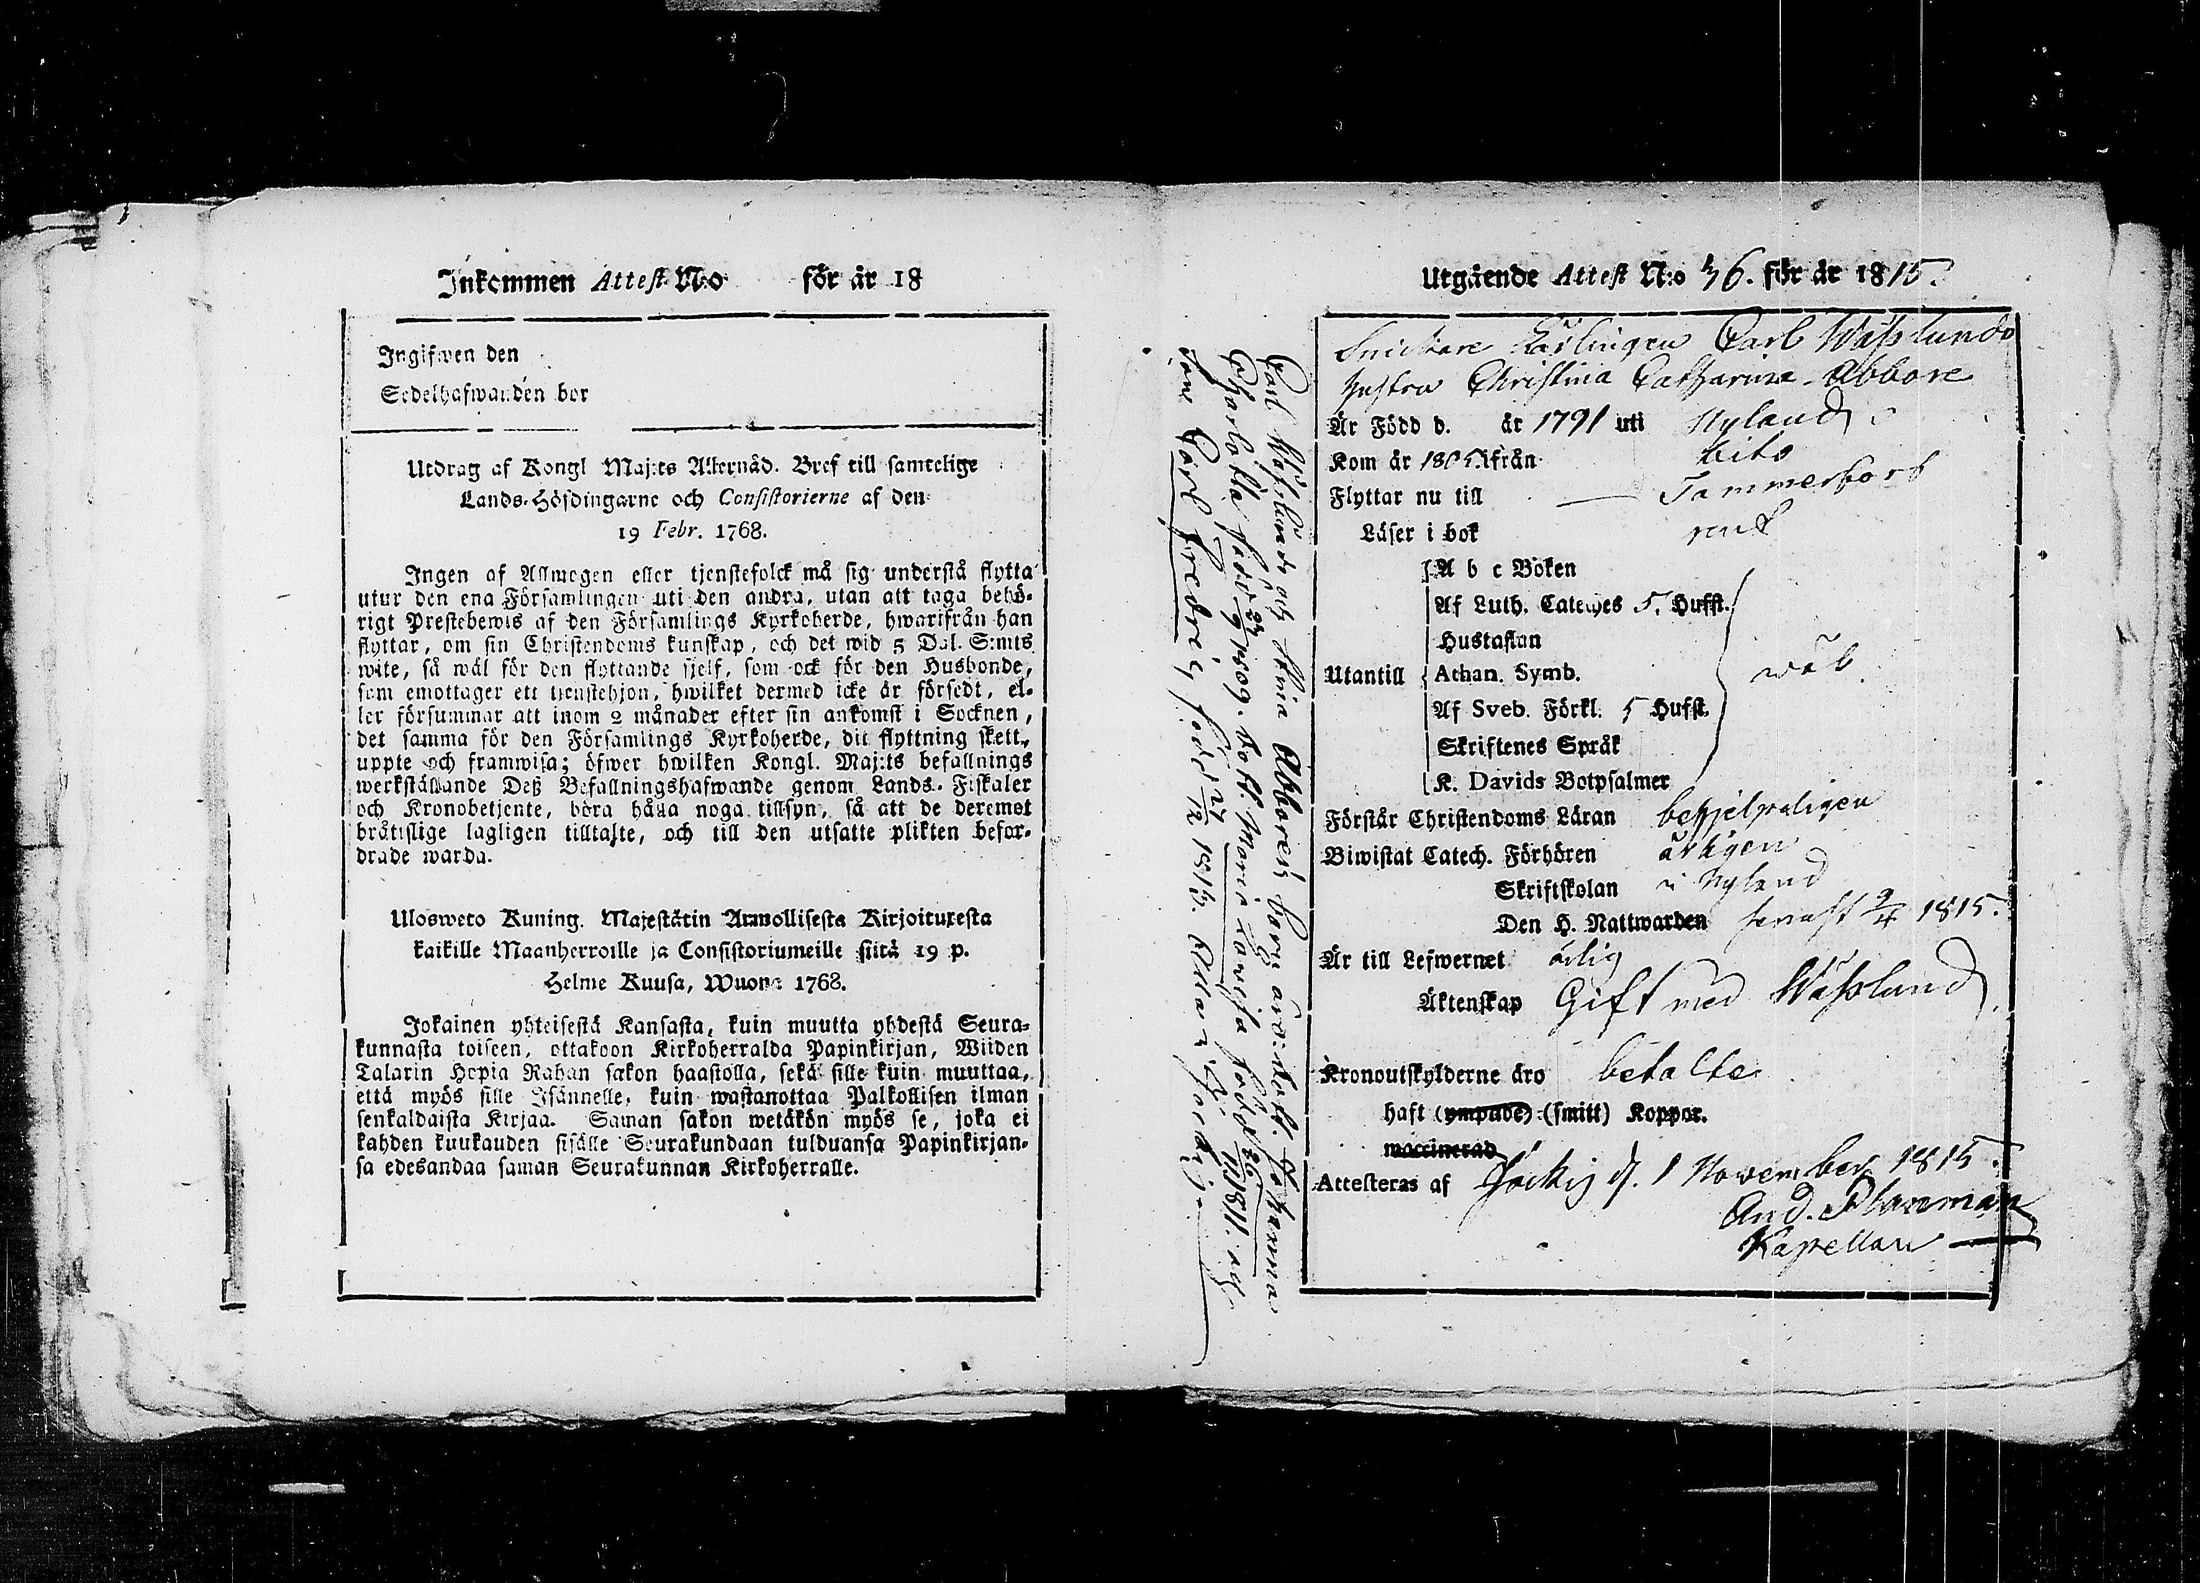 Inkommen Attest N:o för år 18
Ingifwen den
Sedelhafwanden bor
Utdrag af Kongl Maj:ts Allernåd. Bref till samtelige
Lands-Höfdingarne och Consistorierne af den
19 Febr. 1768.
Ingen af Allmogen eller tjenstefolck må sig understå flytta
utur den ena Församlingen uti den andra, utan att taga behö-
rigt Prestebewis af den Församlings Kyrkoherde, hwarifrån han
flyttar, om sin Christendoms kunskap, och det wid 5 Dal. S:mts
wite, så wäl för den flyttande sjelf, som ock för den Husbonde,
som emottager ett tienstehjon, hwilket dermed icke är försedt, el-
ler försummar att inom 2 månader efter sin ankomst i Socknen,
det samma för den Församlings Kyrkoherde, dit flyttning skett,
uppte och framwisa; öfwer hwilken Kongl. Maj:ts befallnings
werkställande Deß Befallningshafwande genom Lands-Fiskaler
och Kronobetjente, böra hålla noga tillsyn, så att de deremot
bråtislige lagligen tilltalte, och till den utsatte plikten befor-
drade warda.
Ulosweto Kuning. Majestätin Armollisesta Kirjoituxesta
kaikille Maanherroille ja Consistoriumeille siitä 19 p.
Helme Kuusa, Wuona 1768.
Jokainen yhteisestä Kansasta, kuin muutta yhdestä Seura-
kunnasta toiseen, ottakoon Kirkoherralda Papinkirjan, Wiiden
Talarin Hopia Rahan sakon haastolla, sekä sille kuin muuttaa,
että myös sille Isännelle, kuin wastanottaa Palkollisen ilman
senkaldaista Kirjaa. Saman sakon wetäkön myös se, joka ei
kahden kuukauden sisälle Seurakundaan tulduansa Papinkirjan-
sa edesandaa saman Seurakunnan Kirkoherralle.
Carl Wässlunds och Stina Abborés barn äro: dott. Johanna
Charlotta född 1809. dott. Maria Lovisa född 1811. och
son Carl Fredric född 24/12 1813.
Utgående Attest N:o 36. för år 1815.
Snickare Carl Wässlunds
hustru Christina Catharina Abbore
Är Född d. år 1791 uti Nyland
Kom år 1805. ifrån bito
Flyttar nu till Tammerfors
Läser i bok rent
A b c Boken
Af Luth. Cateches 5. Hufst.
Hustaflan
Utantill Athan. Symb. wäl
Af Sveb. Förkl. 5 Hufst.
Skriftenes Språk
K. Davids Botpsalmer
Förstår Christendoms Läran behjelpeligen
Biwistat Catech. Förhören årligen
Skriftskolan i Nyland
Den H. Nattwarden senast 9/4 1815.
Är till Lefwernet ärlig
Äktenskap Gift med Wässlund
Kronoutskylderne äro betalte
haft (ympade) (smitt) Koppor.
vaccinerad
Attesteras af Jockis d. 1 November 1815.
And. Planman
Kapellan